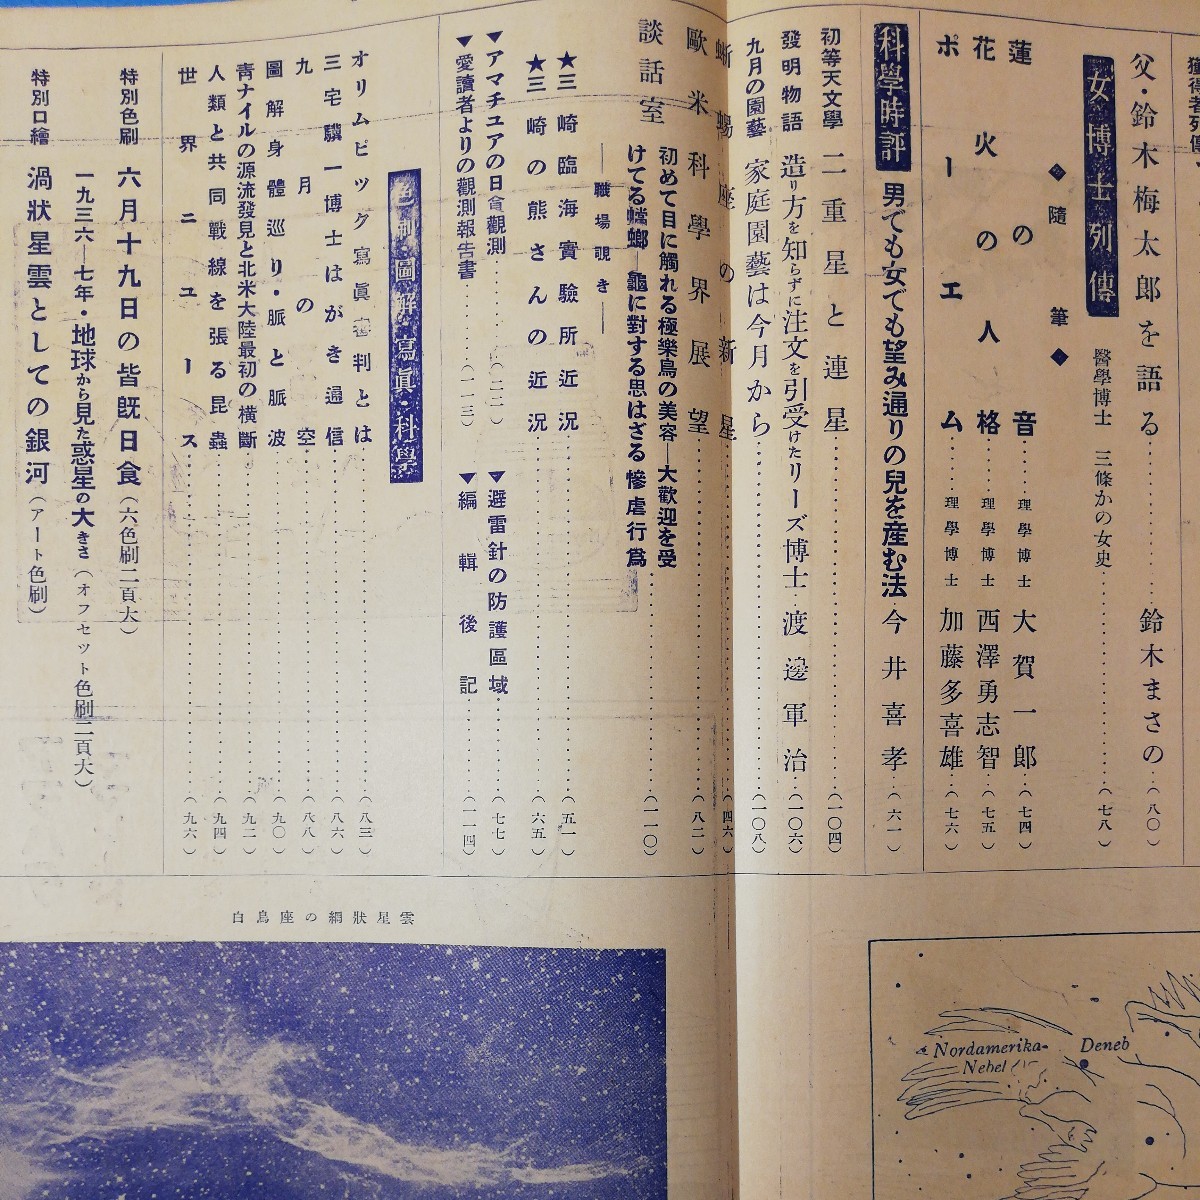 獲得者列傳
父・鈴木梅太郎を語る……鈴木まさの…(八〇)
女博士列傳 醫學博士 三條かの女史……(七八)
◆隨筆◆
蓮の音……理學博士 大賀一郎…(七四)
花火の人格……理學博士 西澤勇志智…(七五)
ポーエム……理學博士 加藤多喜雄…(七六)
科學時評 男でも女でも望み通りの兒を産む法 今井喜孝…(六一)
初等天文學 二重星と連星……(一〇四)
發明物語 造り方を知らずに注文を引受けたリーズ博士 渡邊軍治…(一〇六)
九月の園藝 家庭園藝は今月から……(一〇八)
蜥蜴座の新星……(四六)
歐米科學界展望……(八二)
談話室 初めて目に觸れる極樂鳥の美容―大歡迎を受
けてる蟷螂―龜に對する思はざる慘虐行爲……(一一〇)
―職場覗き―
★三崎臨海實驗所近況……(五一)
★三崎の熊さんの近況……(六五)
▼アマチユアの日食觀測……(二二)
▼避雷針の防護區域……(七七)
▼愛讀者よりの觀測報告書……(一一三)
▼編輯後記……(一一四)
色刷圖解寫眞・科學
オリムピック寫眞審判とは……(八三)
三宅驥一博士はがき通信……(八六)
九月の空……(八八)
圖解身體巡り・脈と脈波……(九〇)
青ナイルの源流發見と北米大陸最初の横斷……(九二)
人類と共同戰線を張る昆蟲……(九四)
世界ニユース……(九六)
特別色刷 六月十九日の皆既日食(六色刷二頁大)
一九三六―七年・地球から見た惑星の大きさ(オフセット色刷二頁大)
特別口繪 渦狀星雲としての銀河(アート色刷)
白鳥座の網狀星雲
Nordamerika-
Nebel
Deneb